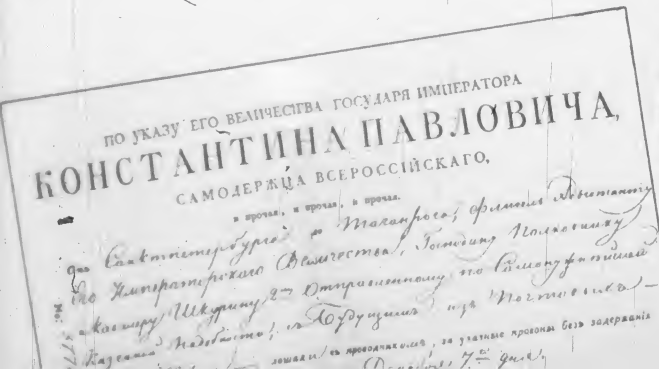 ПО УКАЗУ ЕГО ВЕЛИЧЕСТВА ГОСУДАРЯ ИМПЕРАТОРА
КОНСТАНТИНА ПАВЛОВИЧА,
САМОДЕРЖЦА ВСЕРОССІЙСКАГО,
и прочая, и прочая, и прочая.
Санктпетербурга до Таганрога, Флигель Адъютанту
Его Императорскаго Величества, Господину Полковнику
Шкурину 2му Отправленному по
Казенной надобности, съ Будущимъ изъ Почтовыхъ
лошади съ проводникомъ, за указные прогоны безъ задержанія
7го дня.